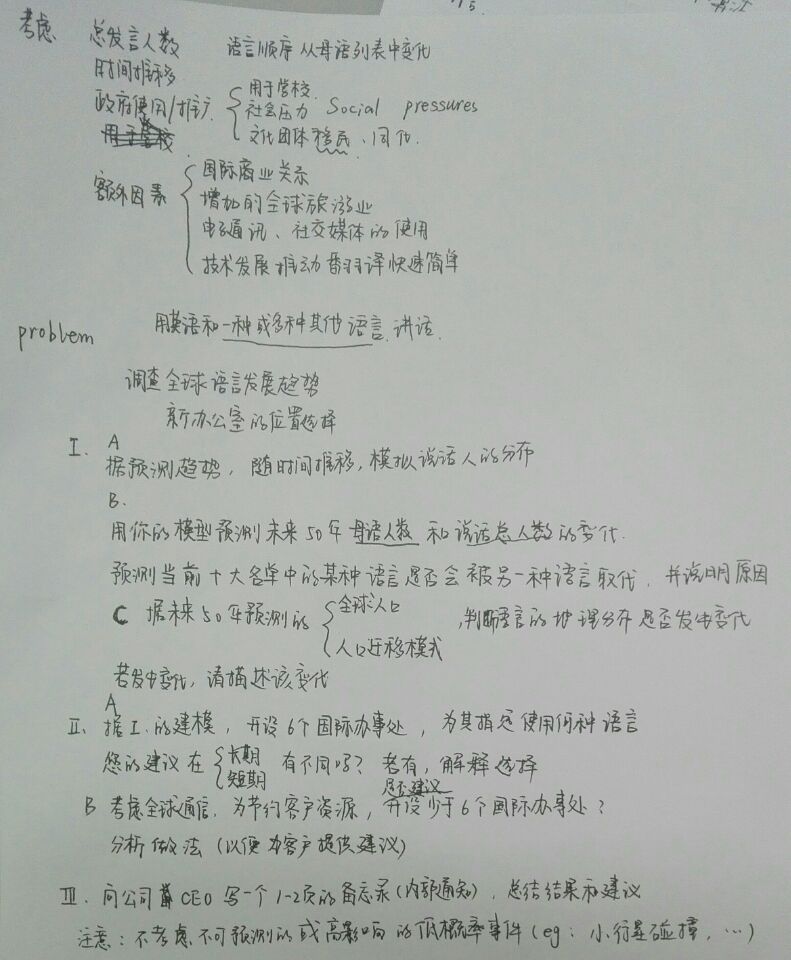 考虑 总发言人数 语言顺序从母语列表中变化
时间推移
政府使用/推广 用于学校
社会压力 Social pressures
文化团体移民、同化
额外因素 国际商业关系
增加的全球旅游业
电子通讯、社交媒体的使用
技术发展推动翻译快速简单
problem 用英语和一种或多种其他语言讲话
调查全球语言发展趋势
新办公室的位置选择
I. A
据预测趋势，随时间推移，模拟说话人的分布
B.
用你的模型预测未来50年母语人数和说话总人数的变化.
预测当前十大名单中的某种语言是否会被另一种语言取代，并说明原因
C 据未来50年预测的 全球人口
人口迁移模式 ，判断语言的地理分布是否发生变化
若发生变化，请描述该变化
A
II. 据I.的建模，开设6个国际办事处，为其指定使用何种语言
您的建议在 长期
短期 有不同吗？若有，解释选择
是否建议
B 考虑全球通信，为节约客户资源，开设少于6个国际办事处？
分析做法（以便为客户提供建议）
III. 向公司CEO写一个1-2页的备忘录（内部通知），总结结果和建议
注意：不考虑不可预测的或高影响的低概率事件（eg：小行星碰撞，…）